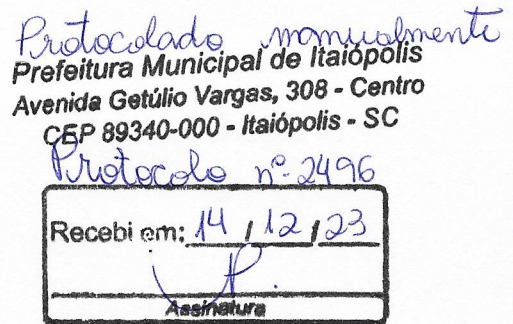 Protocolado manualmente
Prefeitura Municipal de Itaiópolis
Avenida Getúlio Vargas, 308 - Centro
CEP 89340-000 - Itaiópolis - SC
Protocolo nº 2496
Recebi em: 14 / 12 / 23
Assinatura